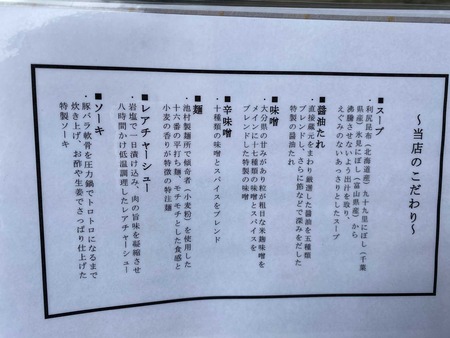 〜当店のこだわり〜
■スープ
・利尻昆布（北海道産）九十九里にぼし（千葉
県産）、氷見にぼし（富山県産）から
沸騰させないよう出汁を取り、
えぐみのないあっさりとしたスープ
■醤油たれ
・直接蔵元をまわり厳選した醤油を五種類
ブレンドし、さらに節などで深みをだした
特製の醤油たれ
■味噌
・大分県の甘みがあり粒が粗目な米麹味噌を
メインに十七種類の味噌とスパイスを
ブレンドした特製の味噌
■辛味噌
・十種類の味噌とスパイスをブレンド
■麺
・池村製麺所で傾奇者（小麦粉）を使用した
十六番の平打ち麺、モチモチとした食感と
小麦の香りが特徴の特注麺
■レアチャーシュー
・岩塩で一日漬け込み、肉の旨味を凝縮させ
八時間かけ低温調理したレアチャーシュー
■ソーキ
・豚バラ軟骨を圧力鍋でトロトロになるまで
炊き上げ、お酢や生姜でさっぱり仕上げた
特製ソーキ